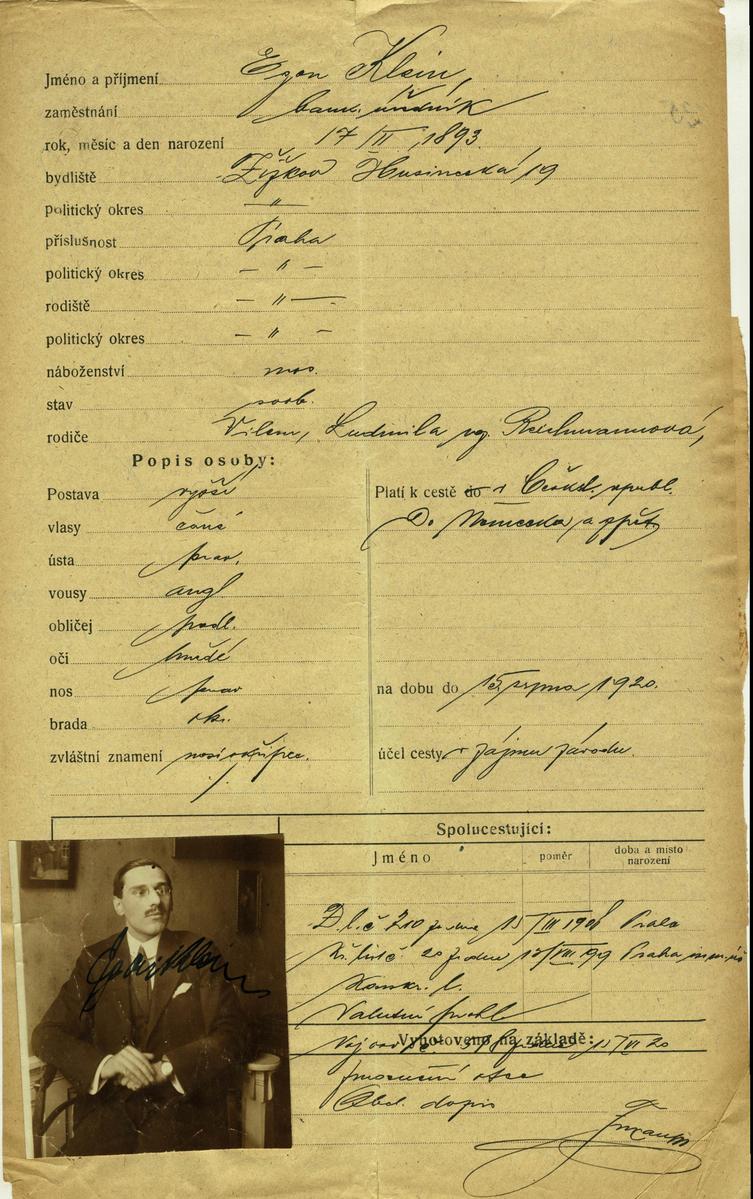 Jméno a příjmení Egon Klein,
zaměstnání bank. úředník
rok, měsíc a den narození 17/II, 1893.
bydliště Žižkov Husinecká 19
politický okres — " —
příslušnost Praha
politický okres — " —
rodiště — " —
politický okres — " —
náboženství mos.
stav svob.
rodiče Vilém, Ludmila roz. Reichmannová,
Popis osoby:
Postava vyšší
vlasy černé
ústa prav.
vousy angl
obličej podl.
oči hnědé
nos prav
brada ok.
zvláštní znamení nosí skřipec.
Platí k cestě do v Českosl. republ.
Do Německa a zpět
na dobu do 15. srpna 1920.
účel cesty v zájmu závodu.
Spolucestující:
Jméno poměr doba a místo narození
D. l. č 210 ze dne 15/III 1908 Praha
20 ze dne VIII Praha
Konskr. l.
Valutní prohl
Vyhotoveno na základě:
ze dne 15/VI 20
otce
Obch. dopis
Egon Klein